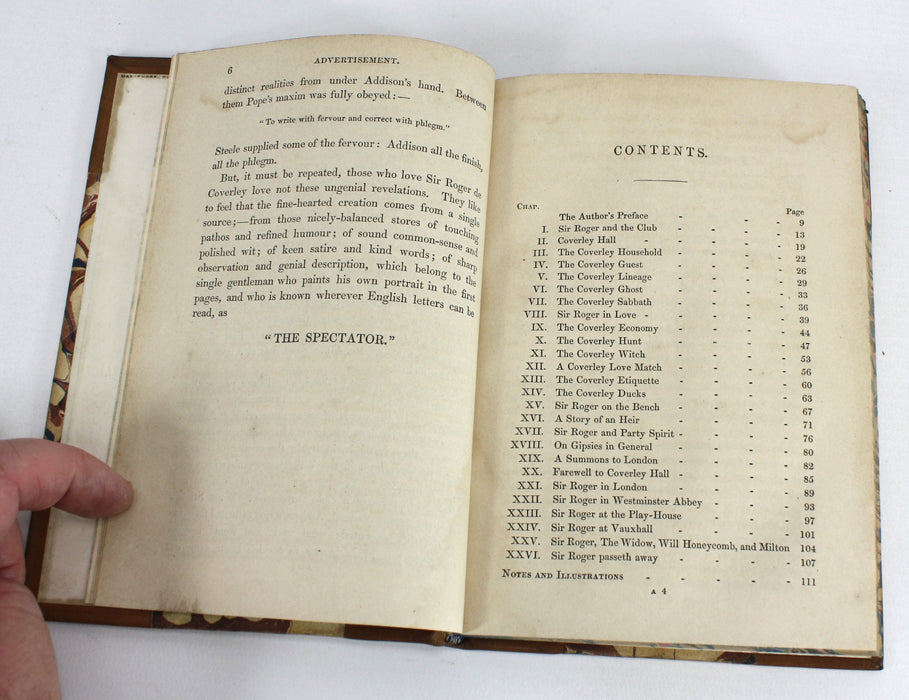 6
ADVERTISEMENT.
distinct realities from under Addison's hand. Between
them Pope's maxim was fully obeyed : —
"To write with fervour and correct with phlegm."
Steele supplied some of the fervour : Addison all the finish,
all the phlegm.
But, it must be repeated, those who love Sir Roger de
Coverley love not these ungenial revelations. They like
to feel that the fine-hearted creation comes from a single
source;—from those nicely-balanced stores of touching
pathos and refined humour; of sound common-sense and
polished wit; of keen satire and kind words; of sharp
observation and genial description, which belong to the
single gentleman who paints his own portrait in the first
pages, and who is known wherever English letters can be
read, as
"THE SPECTATOR."
CONTENTS.
CHAP. Page
The Author's Preface - - - 9
I. Sir Roger and the Club - - - - 13
II. Coverley Hall - - - - 19
III. The Coverley Household - - - - 22
IV. The Coverley Guest - - - - 26
V. The Coverley Lineage - - - - 29
VI. The Coverley Ghost - - - - 33
VII. The Coverley Sabbath - - - - 36
VIII. Sir Roger in Love - - - - - 39
IX. The Coverley Economy - - - - 44
X. The Coverley Hunt - - - - 47
XI. The Coverley Witch - - - - 53
XII. A Coverley Love Match - - - - 56
XIII. The Coverley Etiquette - - - - 60
XIV. The Coverley Ducks - - - - 63
XV. Sir Roger on the Bench - - - - 67
XVI. A Story of an Heir - - - - 71
XVII. Sir Roger and Party Spirit - - - - 76
XVIII. On Gipsies in General - - - - 80
XIX. A Summons to London - - - - 82
XX. Farewell to Coverley Hall - - - - 85
XXI. Sir Roger in London - - - - 89
XXII. Sir Roger in Westminster Abbey - - - 93
XXIII. Sir Roger at the Play-House - - - - 97
XXIV. Sir Roger at Vauxhall - - - - 101
XXV. Sir Roger, The Widow, Will Honeycomb, and Milton 104
XXVI. Sir Roger passeth away - - - - 107
NOTES AND ILLUSTRATIONS - - - - - 111
A 4